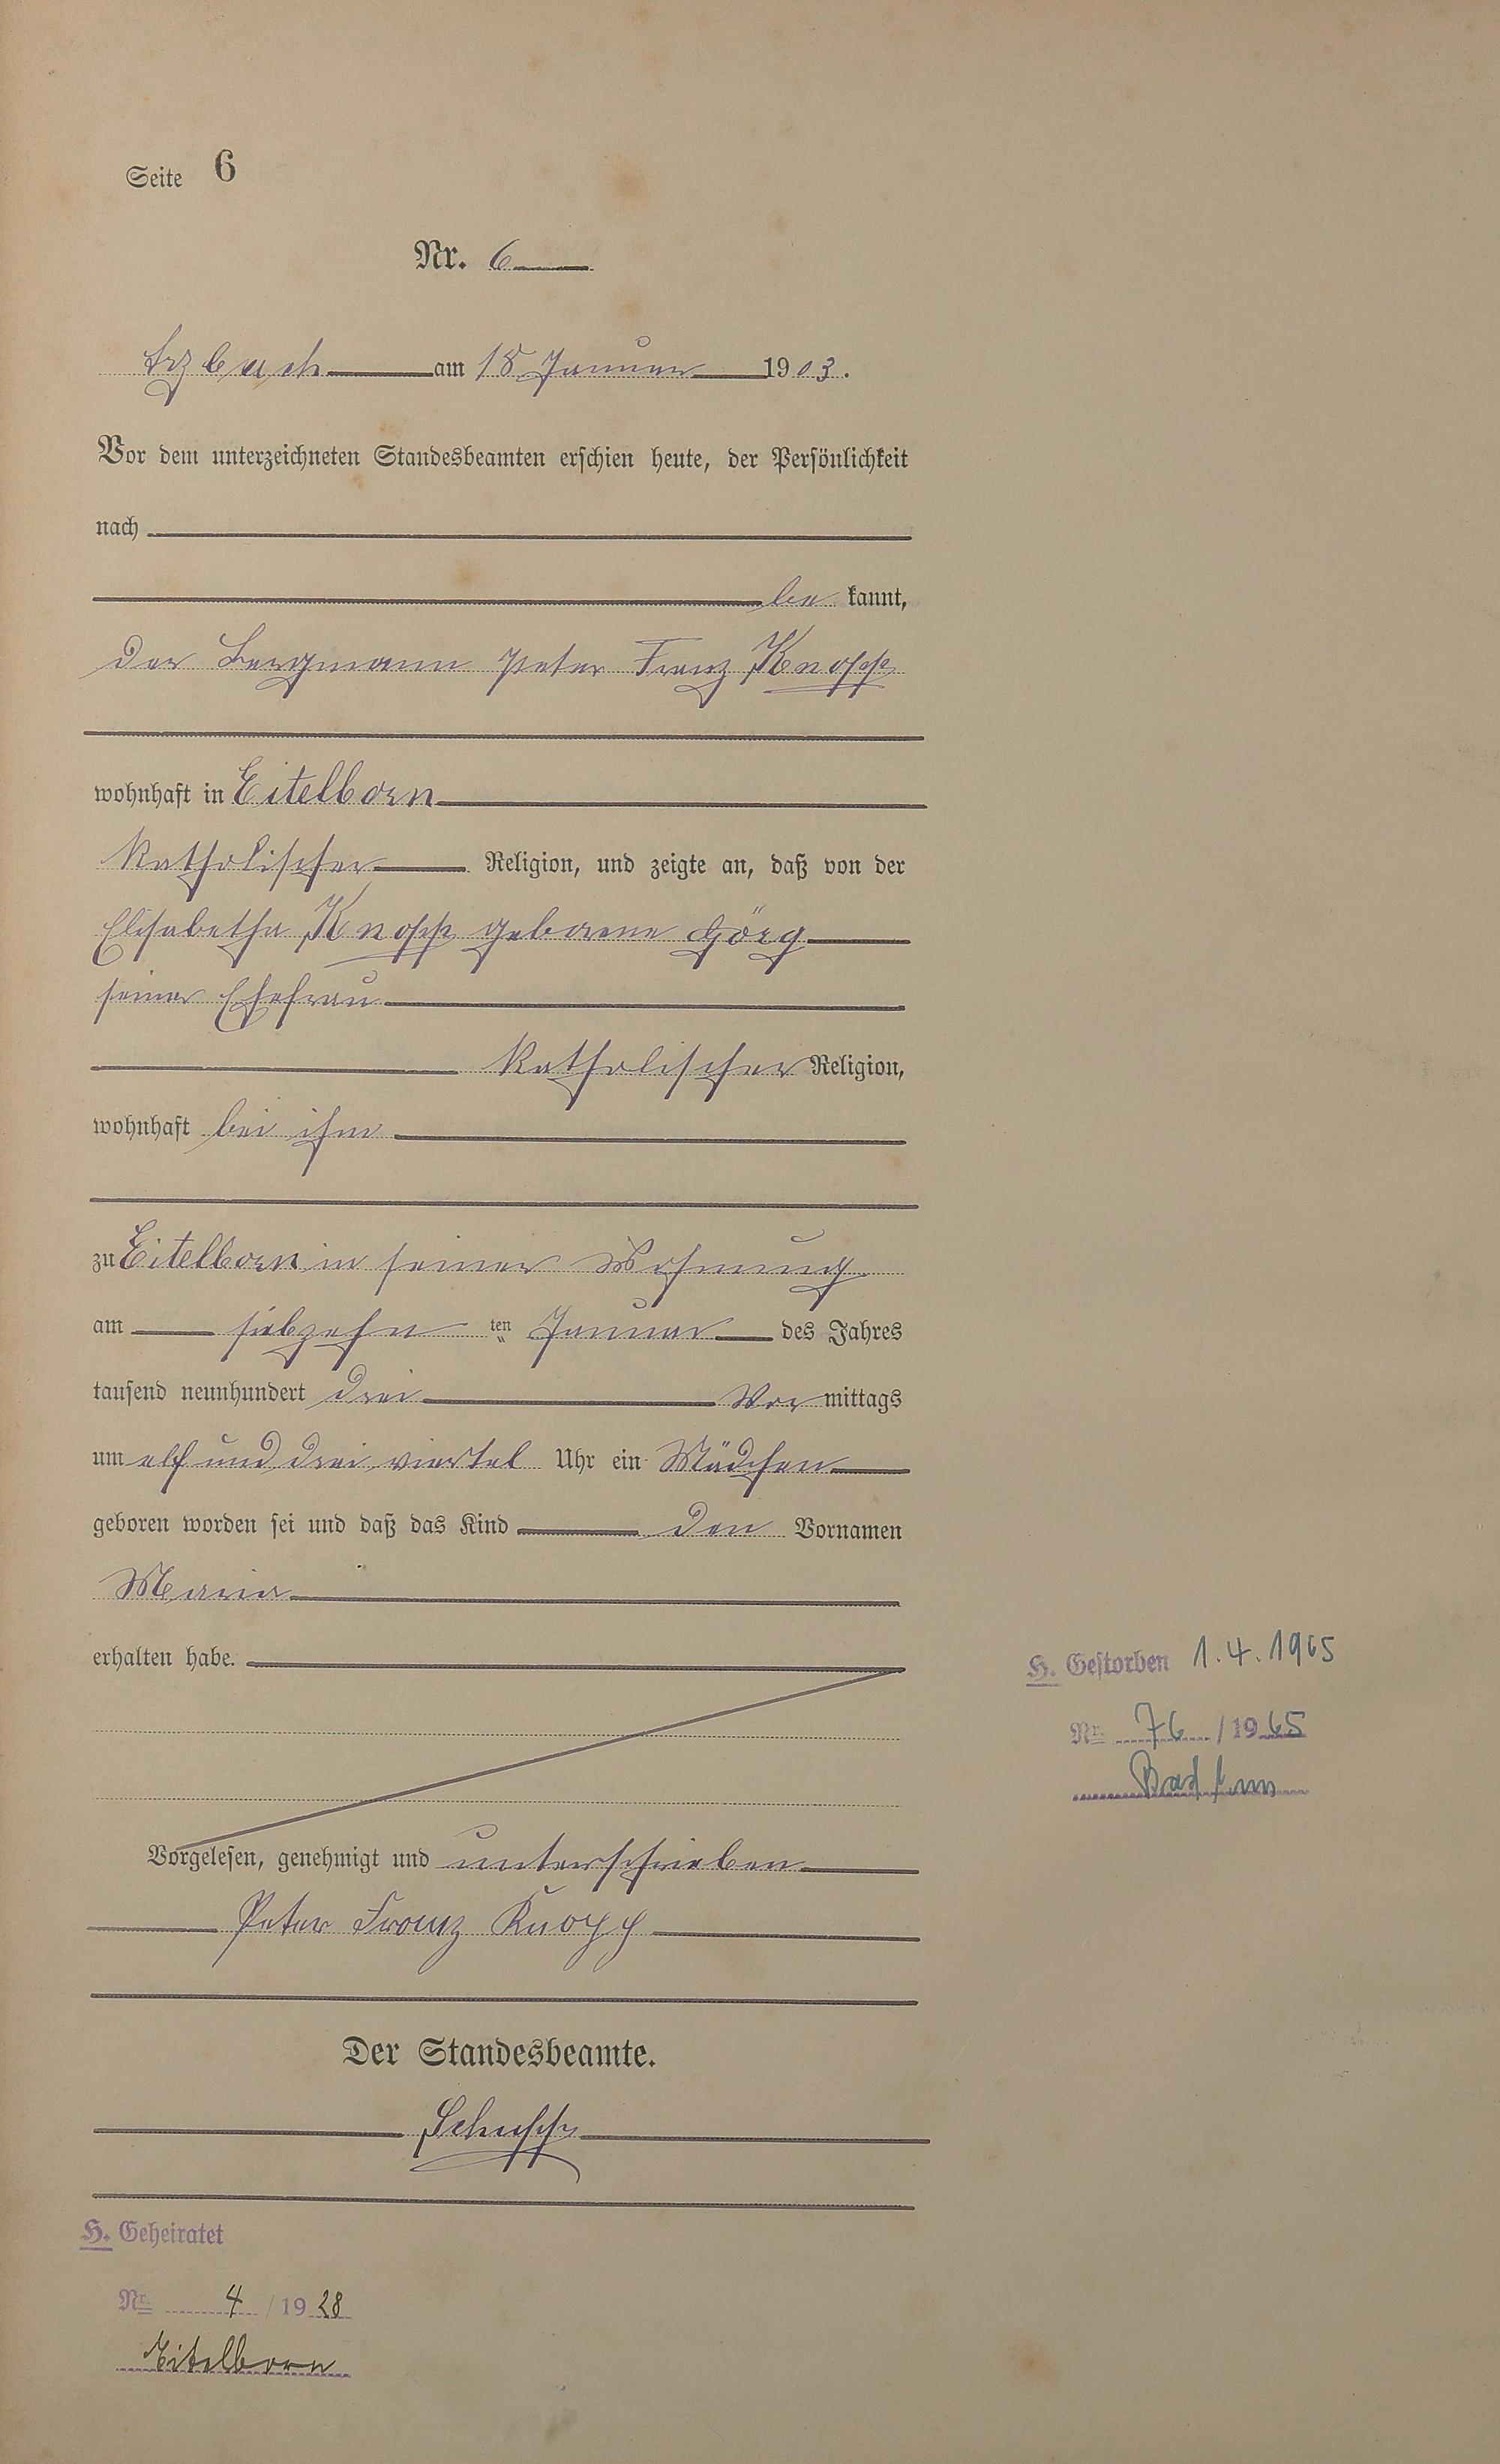 Seite 6
Nr. 6
Arzbach am 18 Januar 1903.
Vor dem unterzeichneten Standesbeamten erschien heute, der Persönlichkeit
nach
be kannt,
der Bergmann Peter Franz Knopp
wohnhaft in Eitelborn
katholischer Religion, und zeigte an, daß von der
Elisabetha Knopp geborene Görg
seiner Ehefrau
katholischer Religion,
wohnhaft bei ihm
zu Eitelborn in seiner Wohnung
am siebzehn ten Januar des Jahres
tausend neunhundert drei Vor mittags
um elf und drei viertel Uhr ein Mädchen
geboren worden sei und daß das Kind den Vornamen
Maria
erhalten habe.
H. Gestorben 1.4.1965
Nr. 76 / 1965
Bad Ems
Vorgelesen, genehmigt und unterschrieben
Peter Franz Knopp
Der Standesbeamte.
Schupp
H. Geheiratet
Nr. 4 / 1928
Eitelborn